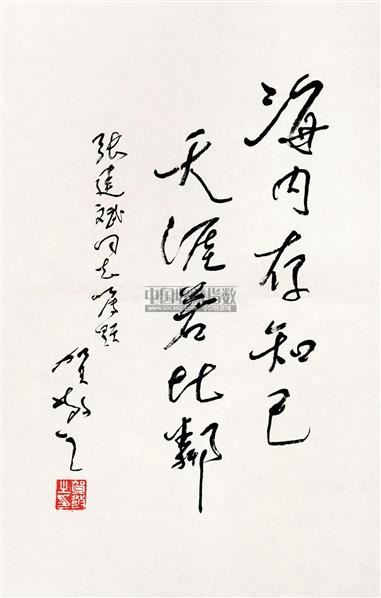 海内存知己
天涯若比邻
张建斌同志嘱题
贺敬之
贺敬之印
中国收藏指数